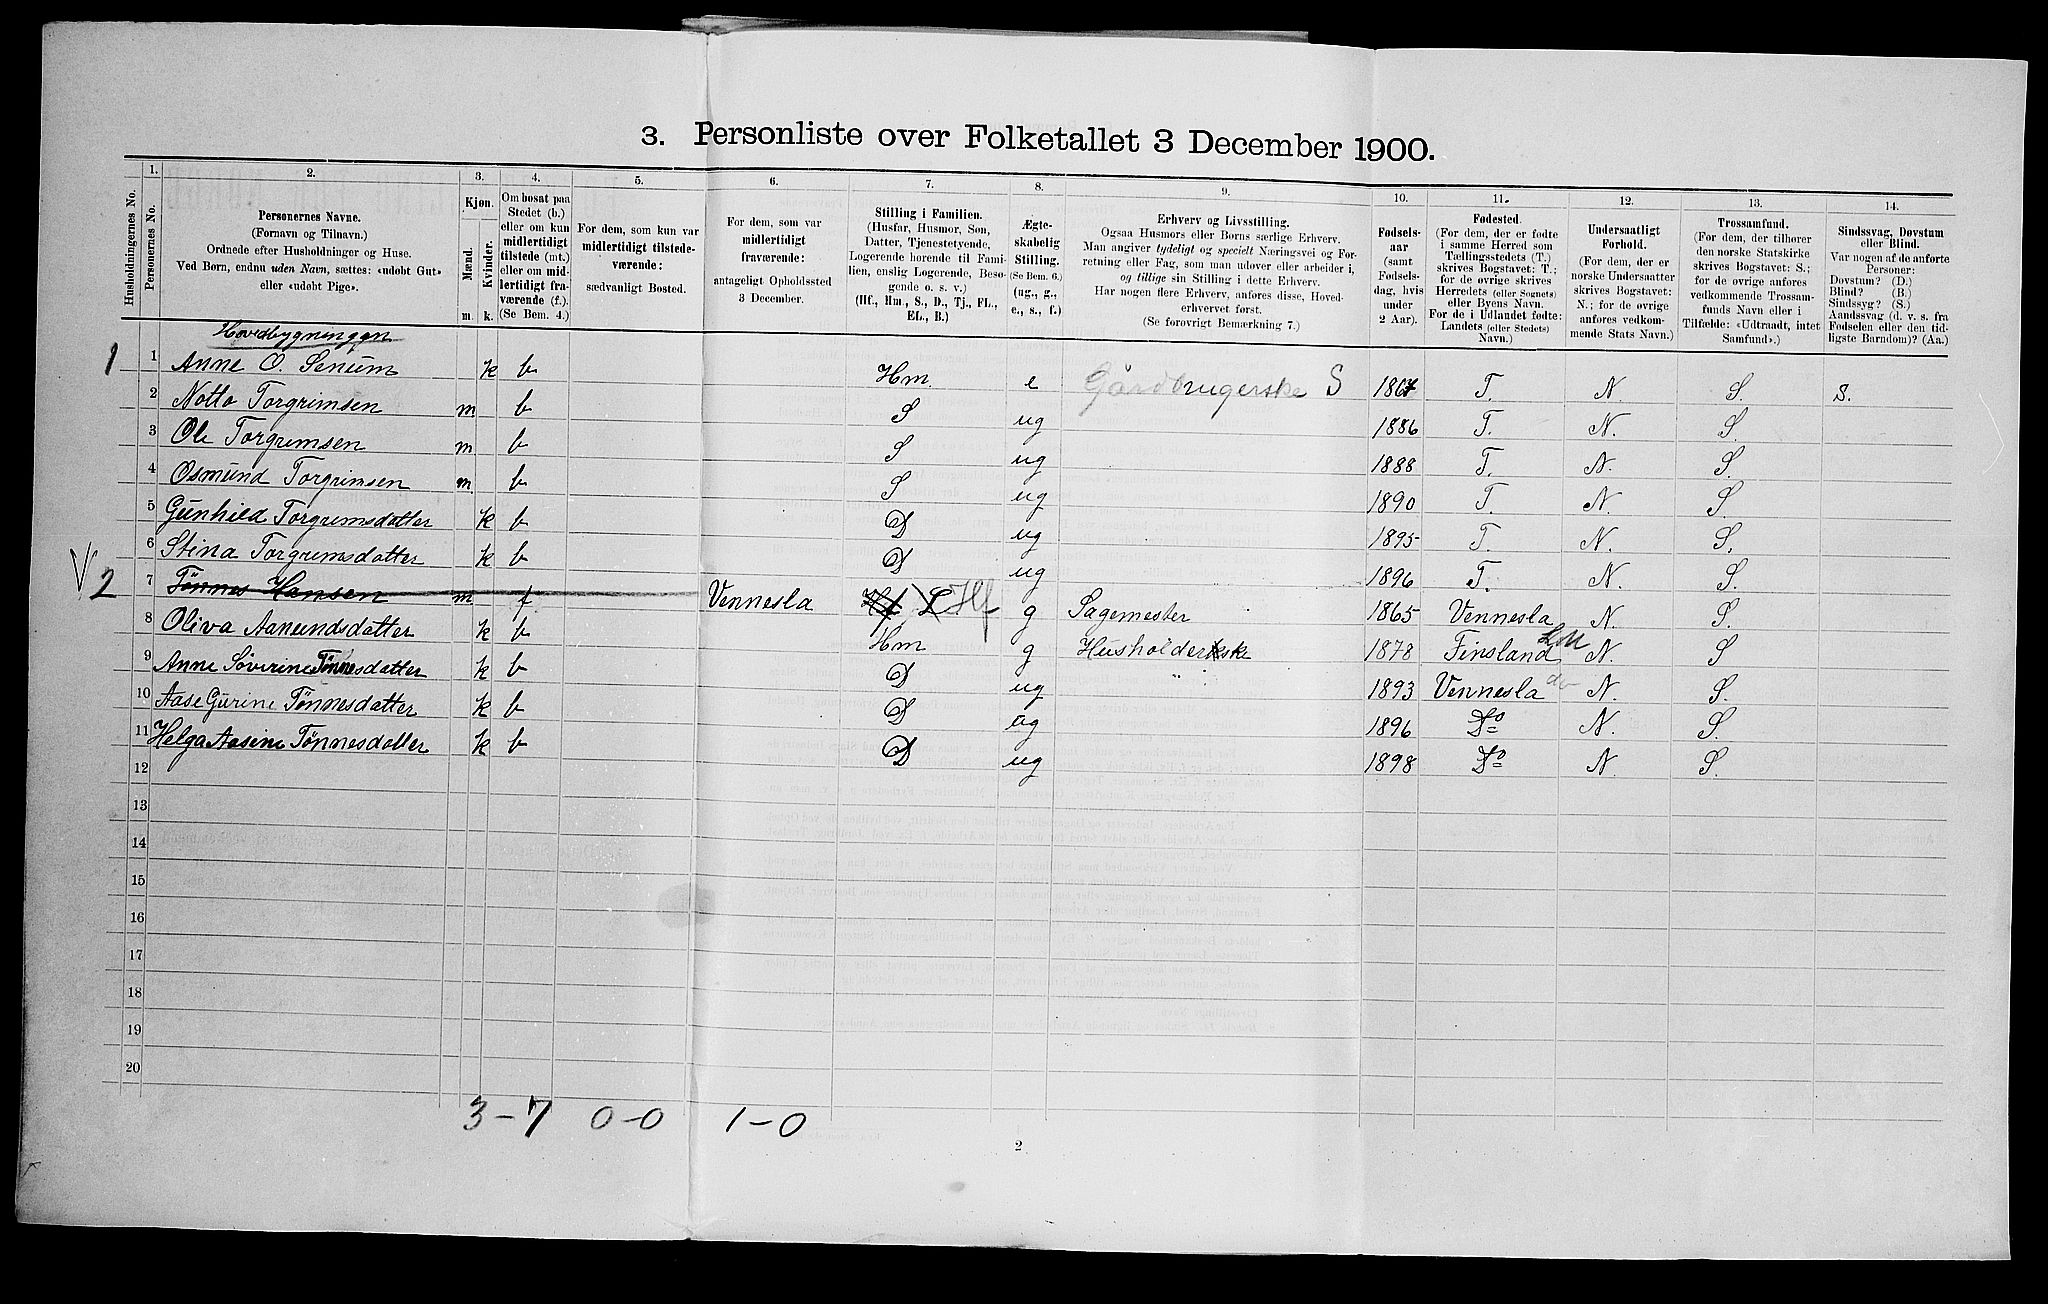 3. Personliste over Folketallet 3 December 1900.
Husholdningernes No.
1. Personernes No.
2. Personernes Navne.
(Fornavn og Tilnavn.)
Ordnede efter Husholdninger og Huse.
Ved Børn, endnu uden Navn, sættes: «udøbt Gut»
eller «udøbt Pige».
3. Kjøn.
Mænd. m.
Kvinder. k.
4. Om bosat paa
Stedet (b.)
eller om kun
midlertidigt
tilstede (mt.)
eller om mid-
lertidigt fra-
værende (f.).
(Se Bem. 4.)
5. For dem, som kun var
midlertidigt tilstede-
værende:
sædvanligt Bosted.
6. For dem, som var
midlertidigt
fraværende:
antageligt Opholdssted
3 December.
7. Stilling i Familien.
(Husfar, Husmor, Søn,
Datter, Tjenestetyende,
Logerende hørende til Fami-
lien, enslig Logerende, Besø-
gende o. s. v.)
(Hf., Hm., S., D., Tj., FL.,
EL., B.)
8. Ægte-
skabelig
Stilling.
(Se Bem. 6.)
(ug., g.,
e., s., f.)
9. Erhverv og Livsstilling.
Ogsaa Husmors eller Børns særlige Erhverv.
Man angiver tydeligt og specielt Næringsvei og For-
retning eller Fag, som man udøver eller arbeider i,
og tillige sin Stilling i dette Erhverv.
Har nogen flere Erhverv, anføres disse, Hoved-
erhvervet først.
(Se forøvrigt Bemærkning 7.)
10. Fødsels-
aar
(samt
Fødsels-
dag, hvis
under
2 Aar).
11. Fødested.
(For dem, der er fødte
i samme Herred som
Tællingsstedets (T.)
skrives Bogstavet: T.;
for de øvrige skrives
Herredets (eller Sognets)
eller Byens Navn.
For de i Udlandet fødte:
Landets (eller Stedets)
Navn.)
12. Undersaatligt
Forhold.
(For dem, der er
norske Undersaatter
skrives Bogstavet:
N.; for de øvrige
anføres vedkom-
mende Stats Navn.)
13. Trossamfund.
(For dem, der tilhører
den norske Statskirke
skrives Bogstavet: S.;
for de øvrige anføres
vedkommende Trossam-
funds Navn eller i
Tilfælde: «Udtraadt, intet
Samfund».)
14. Sindssvag, Døvstum
eller Blind.
Var nogen af de anførte
Personer:
Døvstum? (D.)
Blind? (B.)
Sindssyg? (S.)
Aandssvag (d. v. s. fra
Fødselen eller den tid-
ligste Barndom)? (Aa.)
Hovedbygningen
1 1 Anne O. Senum k b Hm. e Gårdbrugerske S 1864 T. N. S. S.
2 Notto Torgrimsen m. b S ug 1886 T. N. S.
3 Ole Torgrimsen m b S ug 1888 T. N. S.
4 Osmund Torgrimsen m. b S ug 1890 T. N. S.
5 Gunhild Torgrimsdatter k b D ug 1895 T. N. S.
6 Stina Torgrimsdatter k b D ug 1896 T. N. S.
V 2 7 Tønnes Hansen m f Vennesla Hf L Hf g Sagemester 1865 Vennesla N. S.
8 Oliva Aanundsdatter k b Hm g Husholderske 1878 Finsland LM N. S
9 Anne Søverine Tønnesdatter k b D ug " 1893 Vennesla do N. S
10 Aase Gurine Tønnesdatter k b D ug 1896 Do N. S.
11 Helga Aasine Tønnesdatter k b D ug 1898 Do N. S.
12
13
14
15
16
17
18
19
20
3-7 0-0 1-0
2